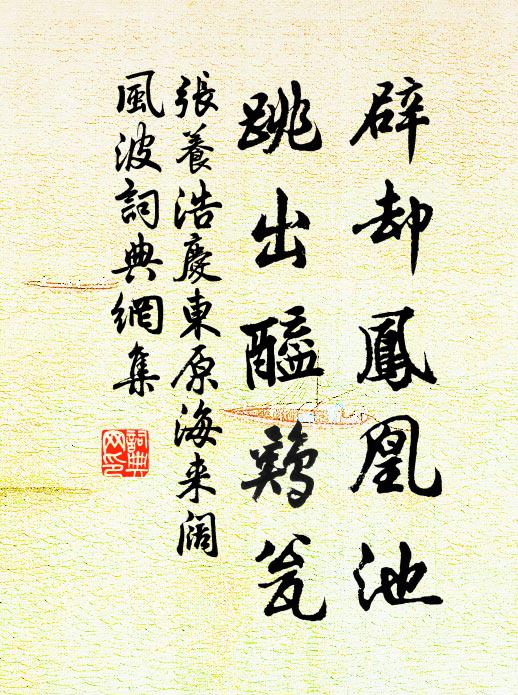 辟却鳳凰池
跳出醯鷄瓮
張養浩慶東原海来闊
風波詞典網集
詞典
网印